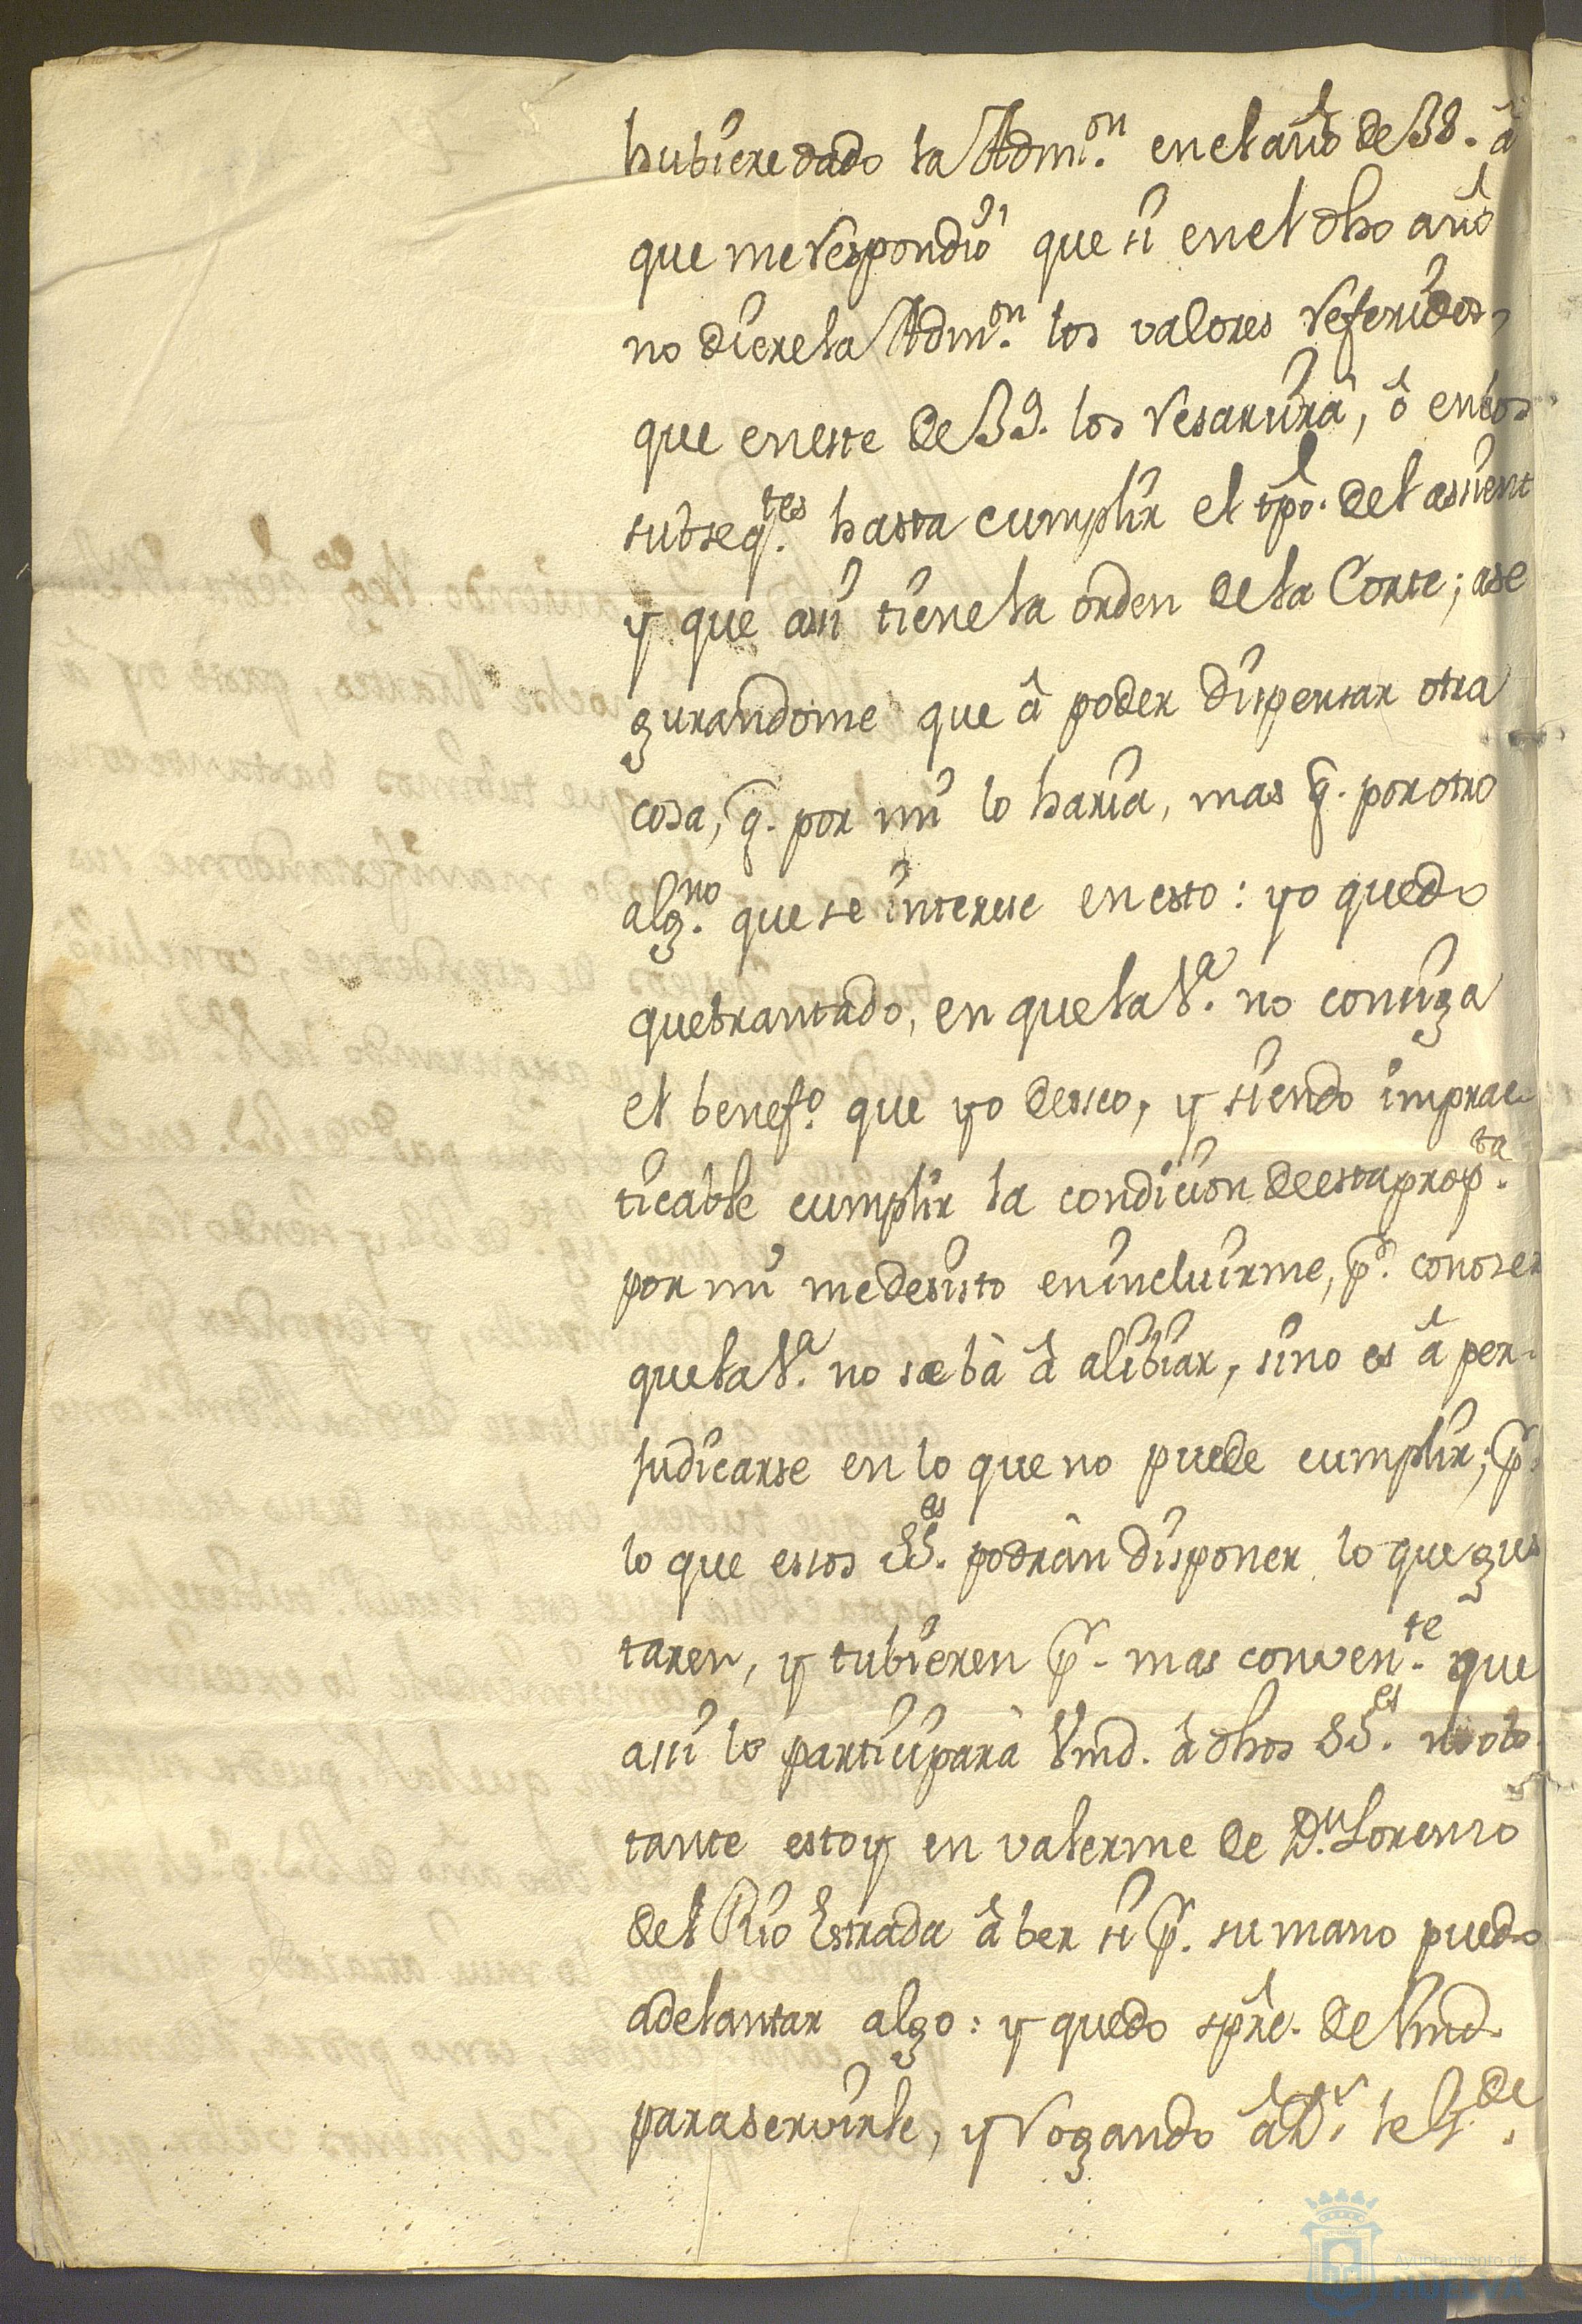 hubiere dado la Adm.on en el año de 38. â
que me respondiô que si en el dho año
no diere la Adm.on los valores referidos,
que en este de 39. los resarzirâ, ô en los
subseq.tes hasta cumplir el tpô. del asient
y que assi tiene la orden de la Corte; ase
gurandome que â poder dispensar otra
cosa, q. por mi lo haria, mas q. por otro
alg.no que se interese en esto: yo quedo
quebrantado, en que la V.a no consiga
el benef.o que yo desseo, y siendo imprac
ticable cumplir la condicion de esta prop.ta
por mi me desisto en incluirme, p.r conoser
que la V.a no se bà â alibiar, sino es â per-
judicarse en lo que no puede cumplir; p.r
lo que essos SS.es podràn disponer lo que gus
taren, y tubieren p.r mas conven.te que
assi lo participarà Vmd. â dhos SS.es no obs
tante estoy en valerme de D.n Lorenso
del Rio Estrada â ber si p.r su mano puedo
adelantar algo: y quedo spre. de Vmd.
para servirle, y rogando â D.s le g.de
Ayuntamiento de
HUELVA